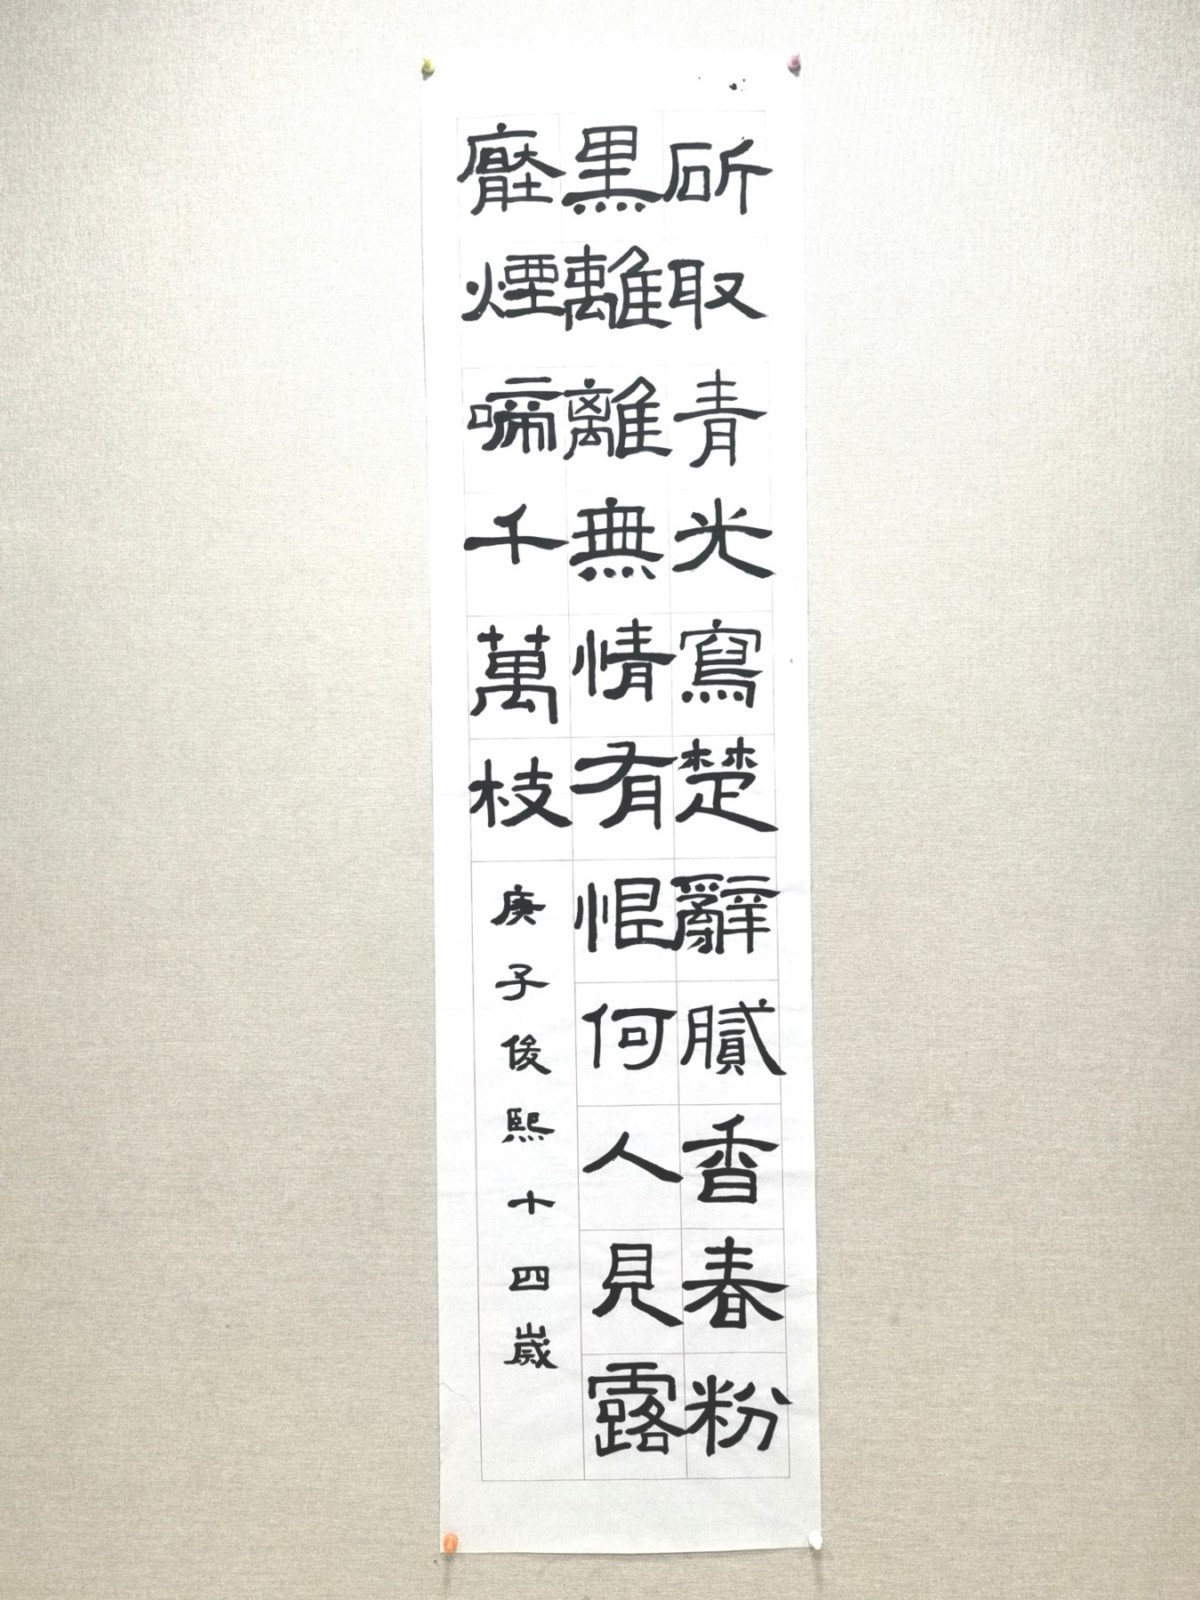 斫取青光寫楚辭膩香春粉
黑離離無情有恨何人見露
壓煙啼千萬枝
庚子俊熙十四歲